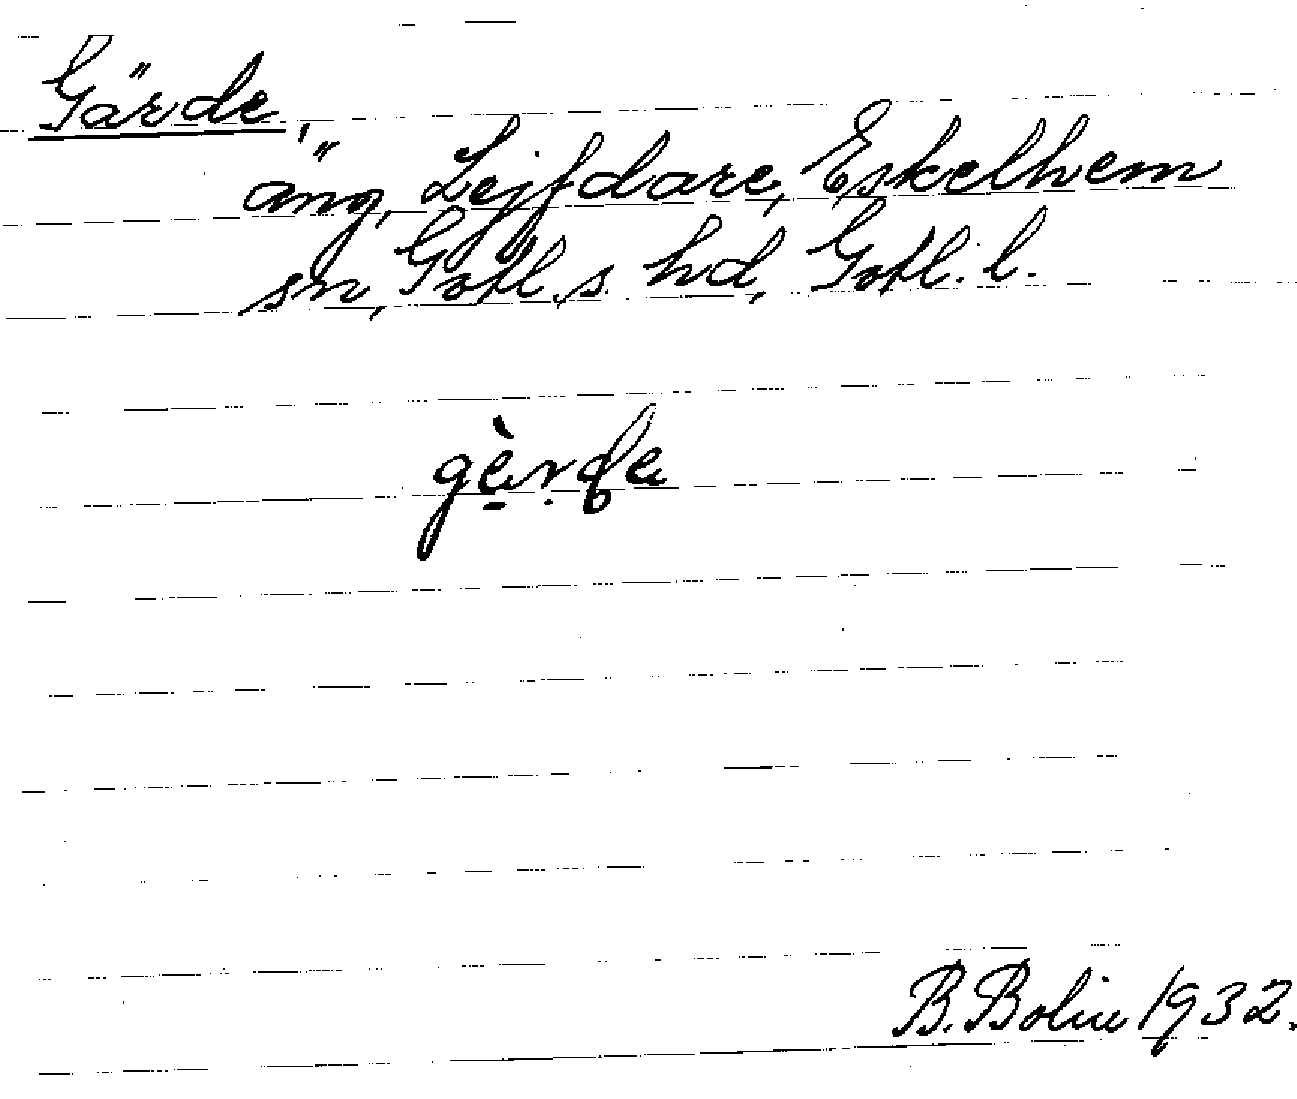 Gärde,
äng, Lejfdare, Eskelhem
sn, Gotl. s. hd, Gotl. l.
gè̠rde
B. Bolin 1932.